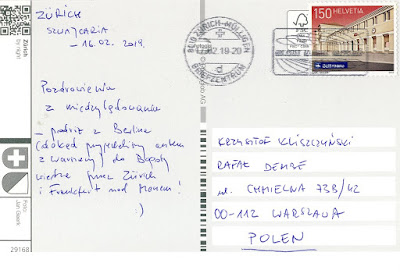 ZÜRICH
SZWAJCARIA
– 16.02.2019.
Pozdrowienia
z międzylądowania
– podróż z Berlina
(dokąd przyjechaliśmy
z Warszawy) do
wiedzie przez Zürich
i Frankfurt nad Menem!
:)
Zürich
by night
Foto
29168
8010 ZÜRICH-MÜLLIGEN
.02.19-20
d
BRIEFZENTRUM
150 HELVETIA
KRZYSZTOF KLISZCZYŃSKI
RAFAŁ DEMBE
ul. CHMIELNA 73B/42
00-112 WARSZAWA
POLEN